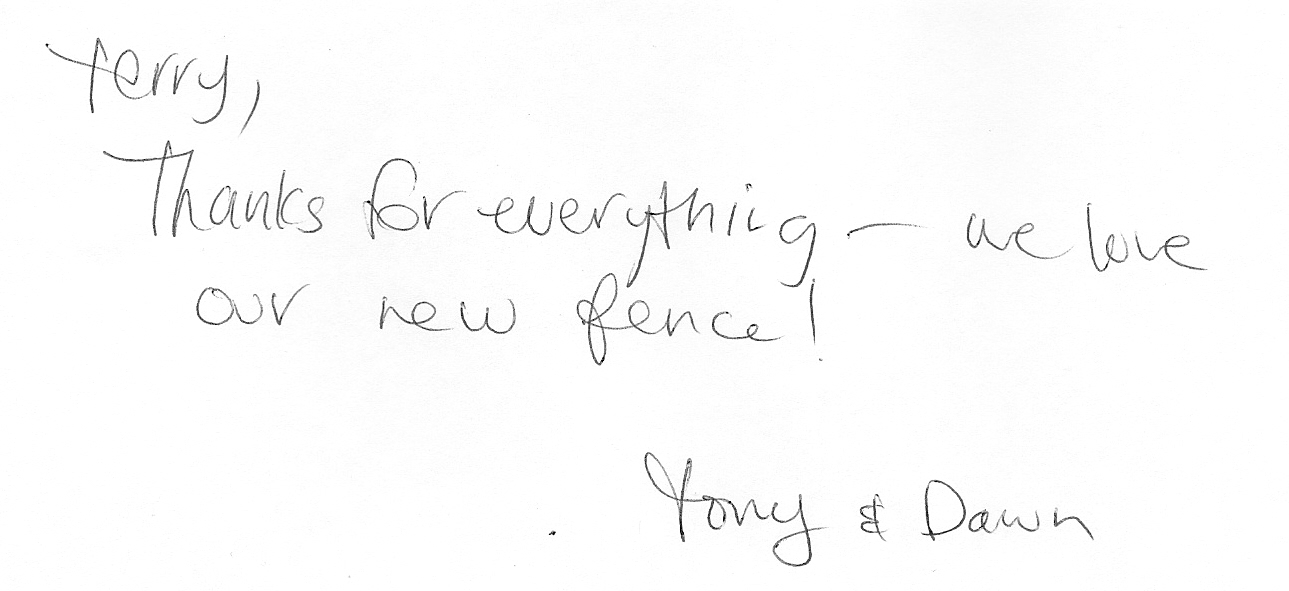 Terry,
Thanks for everything — we love
our new fence!
Tony & Dawn